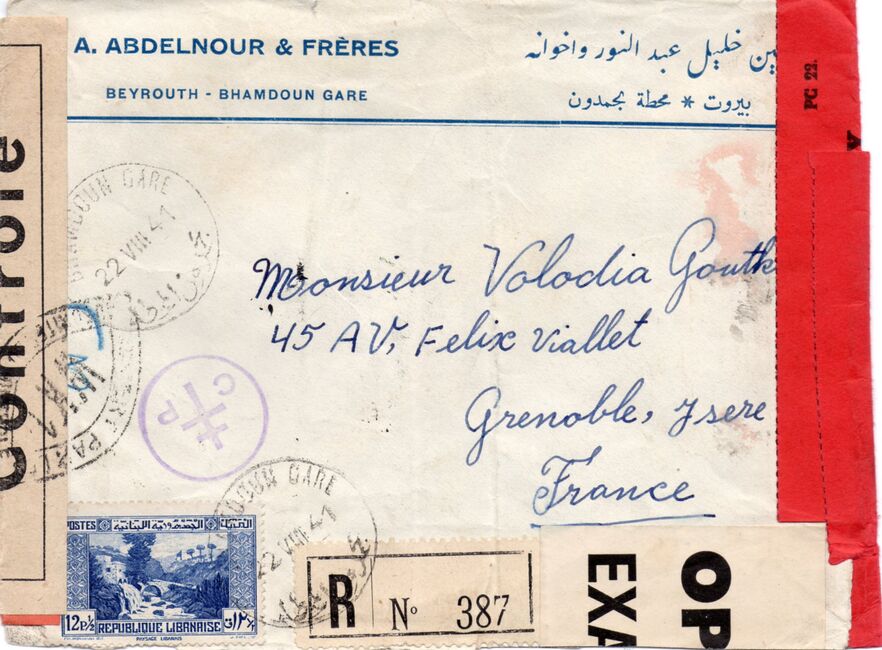 A. ABDELNOUR & FRÈRES
BEYROUTH - BHAMDOUN GARE
خليل عبد النور واخوانه
بيروت * محطة بحمدون
PC 22.
Controle
BHAMDOUN GARE
22 VIII 41
Monsieur Volodia
45 AV, Felix Viallet
Grenoble, Ysere
France
C P
GARE
22 VIII 41
POSTES
الجمهورية اللبنانية
12 P. ½
REPUBLIQUE LIBANAISE
PAYSAGE LIBANAIS
R Nº 387
OP
EXA